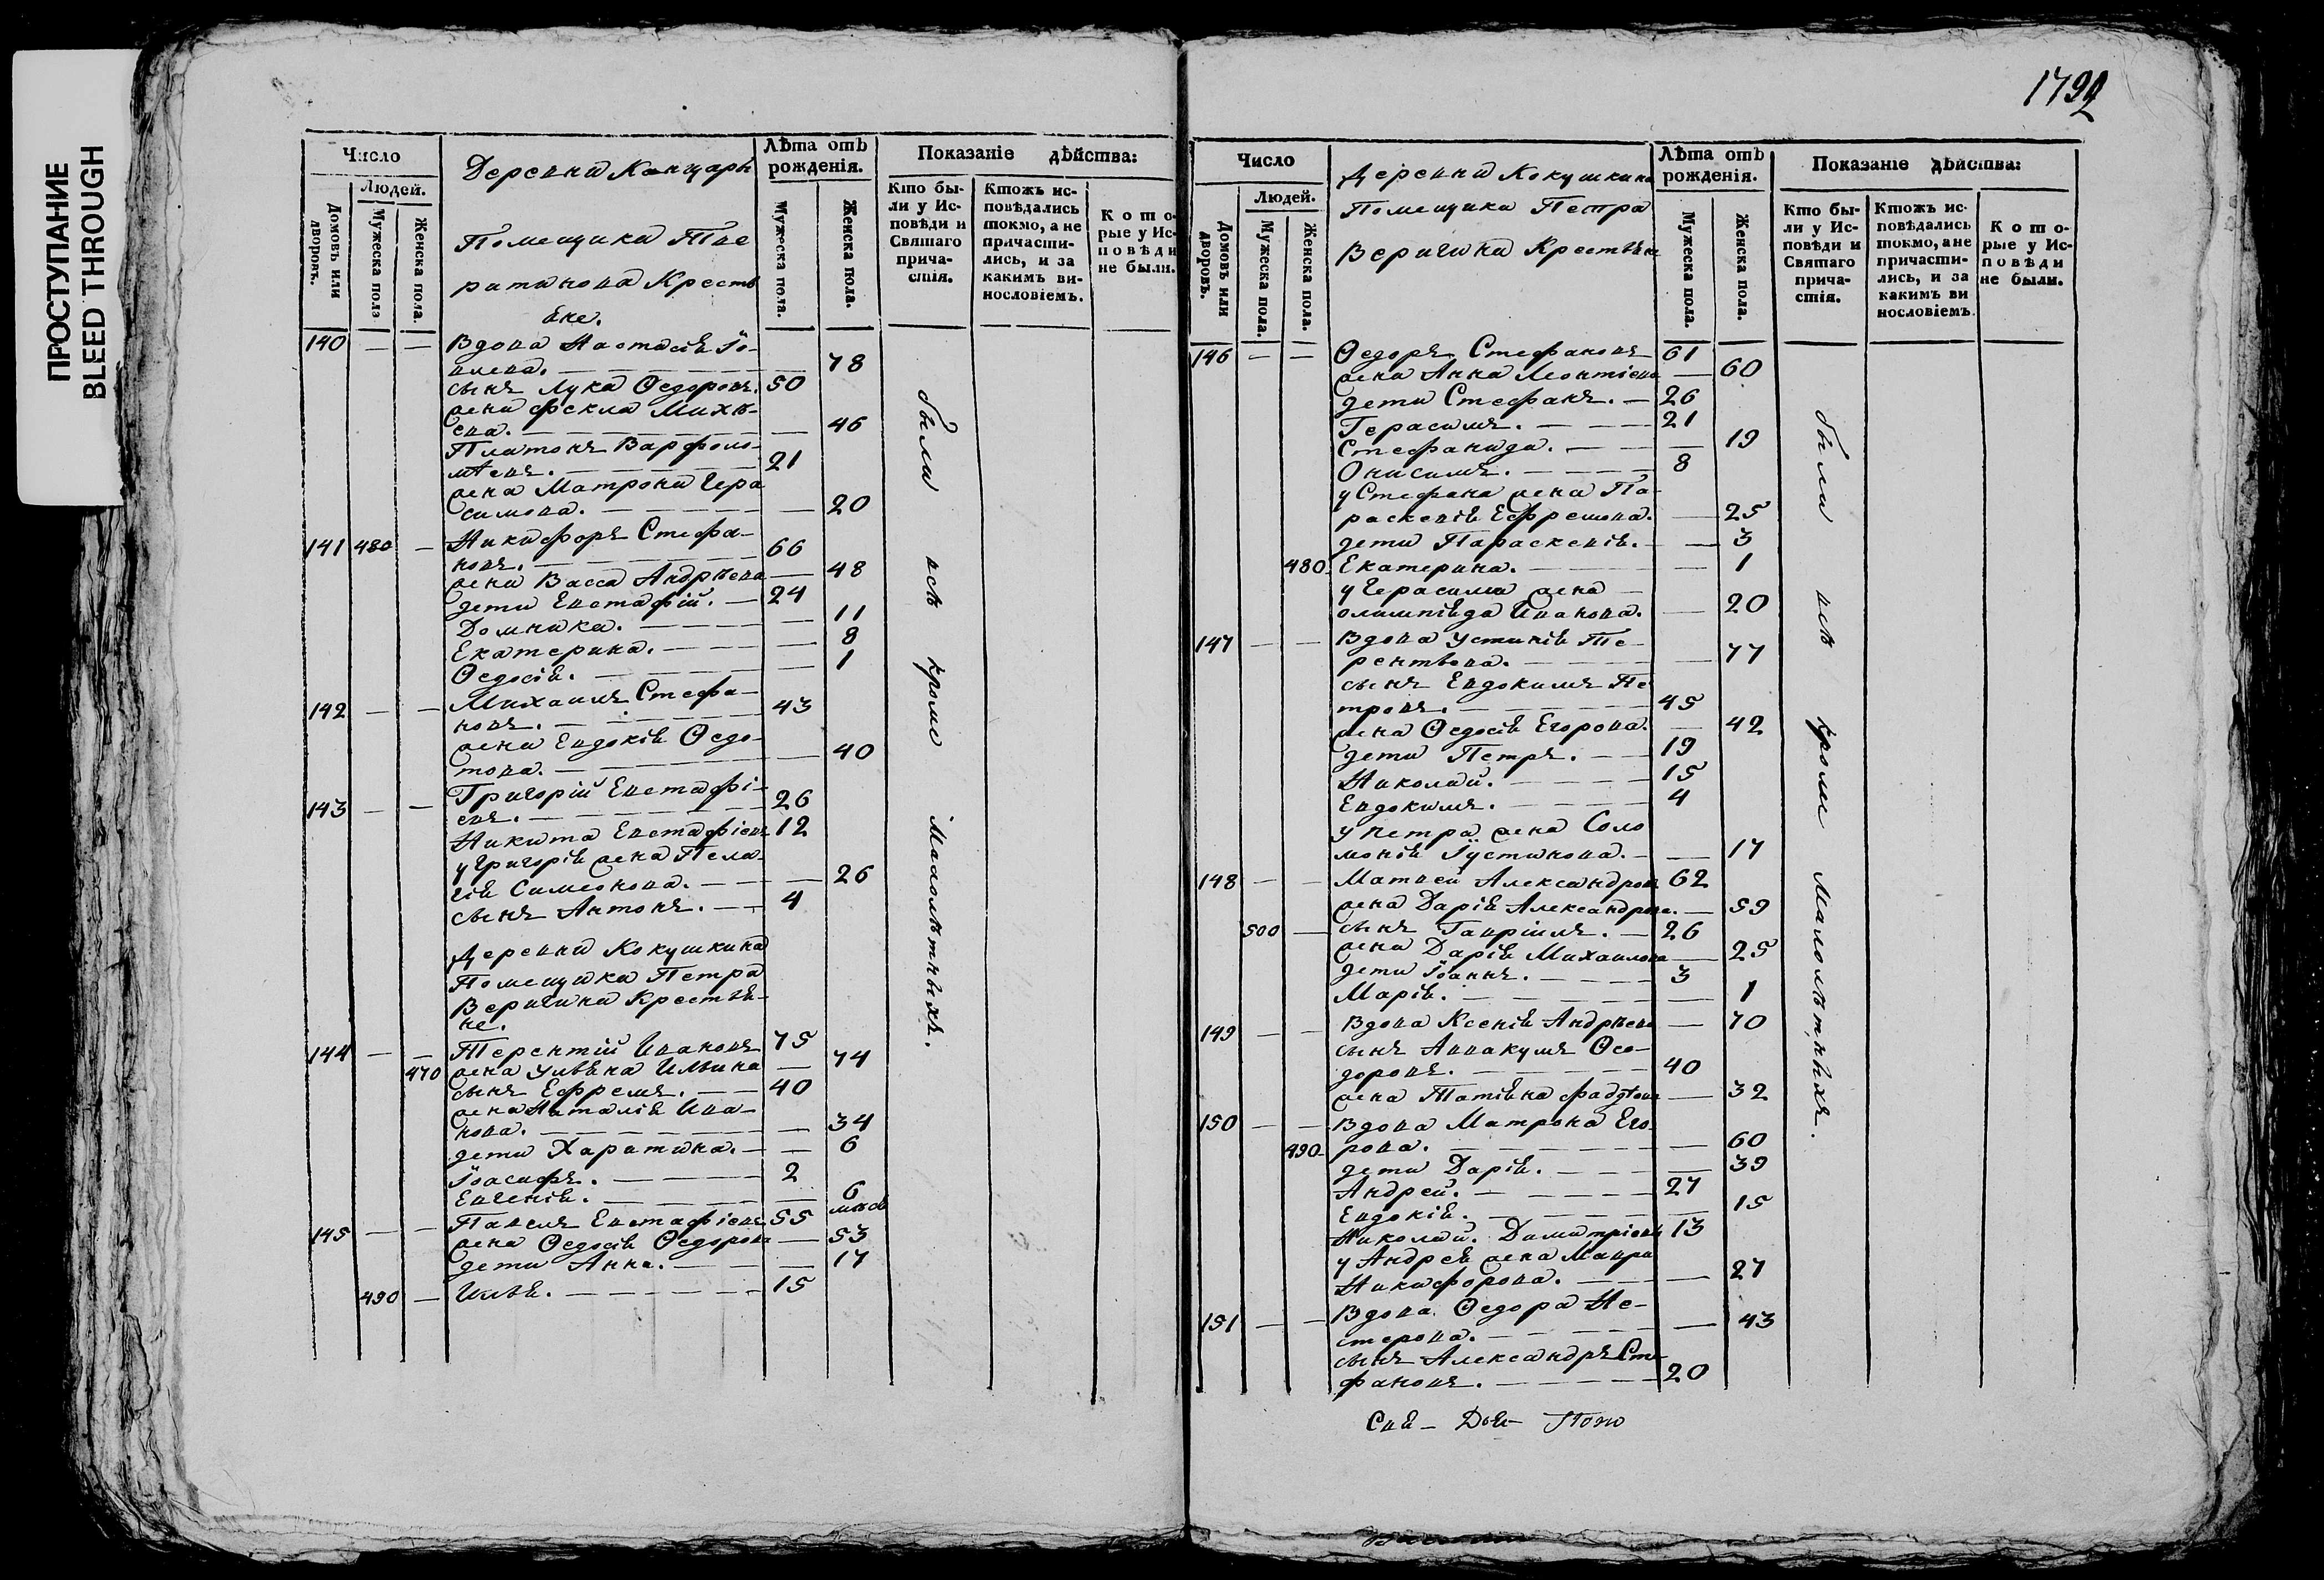 ПРОСТУПАНИЕ
BLEED THROUGH
1792
Число
Людей.
Домовъ или дворовъ.
Мужеска пола
Женска пола.
Деревни Канцарь
Помещика Тве
ратинова Кресть
яне.
Лѣта отъ рожденія.
Мужеска пола.
Женска пола.
Показаніе дѣйства:
Кто бы-
ли у Ис-
повѣди и
Святаго
прича-
стія.
Ктожъ ис-
повѣдались
токмо, а не
причасти-
лись, и за
какимъ ви-
нословіемъ.
Кото-
рые у Ис-
повѣди
не были.
140 — — Вдова Настасія Іо-
влева. — 78
сынъ Лука Ѳедоровъ. 50
жена Фекла Михѣ-
ева. — 46
Платонъ Варфоло-
мѣевъ. — 21
жена Матрона Гера
симова. — 20
141 480 — Никифоръ Стефа-
новъ. — 66
жена Васса Андрѣева — 48
дети Евстафій. — 24
Домника. — 11
Екатерина. — 8
Ѳедосія. — 1
142 — — Михаилъ Стефа-
новъ. — 43
жена Евдокія Ѳедо-
това. — 40
143 — — Григорій Евстафі-
евъ. — 26
Никита Евстафіевъ 12
у Григорія жена Пела-
гія Симеонова. — 26
сынъ Антонъ. — 4
Деревни Кокушкина
Помещика Петра
Веригина Крестья-
не.
144 — — Терентій Ивановъ 75
470 жена Ульяна Ильина — 74
сынъ Ефремъ. — 40
жена Наталія Ива-
нова. — 34
дети Харатина. — 6
Іоасафъ. — 2
Евгенія. — 6 мцов
145 — — Павелъ Евстафіевъ 55
жена Ѳедосія Ѳедорова — 53
дети Анна. — 17
490 — Илья. — 15
были всѣ кроме малолѣтныхъ.
Число
Людей.
Домовъ или дворовъ.
Мужеска пола.
Женска пола.
Деревни Кокушкина
Помещика Петра
Веригина Крестьяне
Лѣта отъ рожденія.
Мужеска пола.
Женска пола.
Показаніе дѣйства:
Кто бы-
ли у Ис-
повѣди и
Святаго
прича-
стія.
Ктожъ ис-
повѣдались
токмо, а не
причасти-
лись, и за
какимъ ви
нословіемъ.
Кото-
рые у Ис-
повѣди
не были.
146 — — Ѳедоръ Стефановъ 61
жена Анна Леонтіева — 60
дети Стефанъ. — 26
Герасимъ. — 21
Стефанида. — 19
Онисимъ. — 8
у Стефана жена Па-
раскевія Ефремова. — 25
дети Параскевія. — 3
480 Екатерина. — 1
у Герасима жена —
олимпіяда Иванова. — 20
147 — — Вдова Устинія Те-
рентьева. — 77
сынъ Евдокимъ Пе
тровъ. — 45
жена Ѳедосія Егорова. — 42
дети Петръ. — 19
Николай. — 15
Евдокимъ. — 4
у петра жена Соло
монія Іустинова. — 17
148 — — Матвей Александровъ 62
жена Дарія Александрова. — 59
500 — сынъ Гавріилъ. — 26
жена Дарія Михаилова — 25
дети Іоаннъ. — 3
Марія. — 1
149 — — Вдова Ксенія Андрѣева — 70
сынъ Аввакумъ Ѳео-
доровъ. — 40
жена Татіяна Фадѣева — 32
150 — — Вдова Матрона Его
490 рова. — 60
дети Дарія. — 39
Андрей. — 27
Евдокія. — 15
Николай. Димитріевъ 13
у Андрея жена Мавра
Никифорова. — 27
151 — — Вдова Ѳедора Не-
стерова. — 43
сынъ Александръ Сте-
фановъ. — 20
были всѣ кроме малолѣтныхъ.